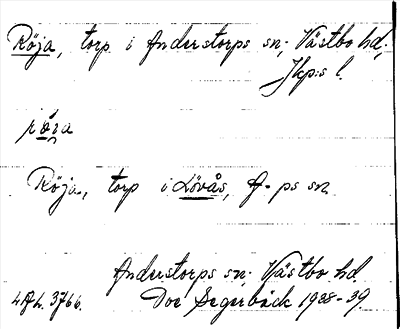 Röja, torp i Anderstorps sn; Västbo hd;
Jkp:s l.
Röja, torp i Lövås, A-ps sn
Anderstorps sn; Västbo hd.
3766. Doe Segerbäck 1938-39.